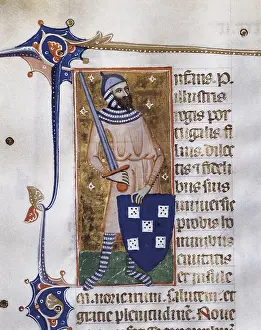 nfans. P.
illustris
regis por
tugalis fi
lius dilec
tis ⁊ fideli
bus suis
universis
probis ho
minibus
civitatis
et insule
salutem et
gratie plenitudinem. Noue